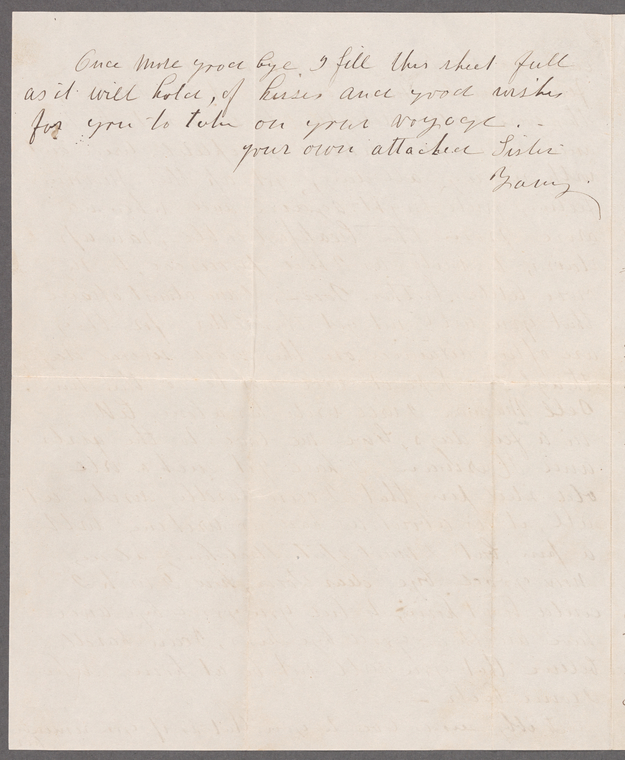 Once more good bye I fill this sheet full
as it will hold, of kisses and good wishes
for you to take on your voyage. . -
your own attached Sister